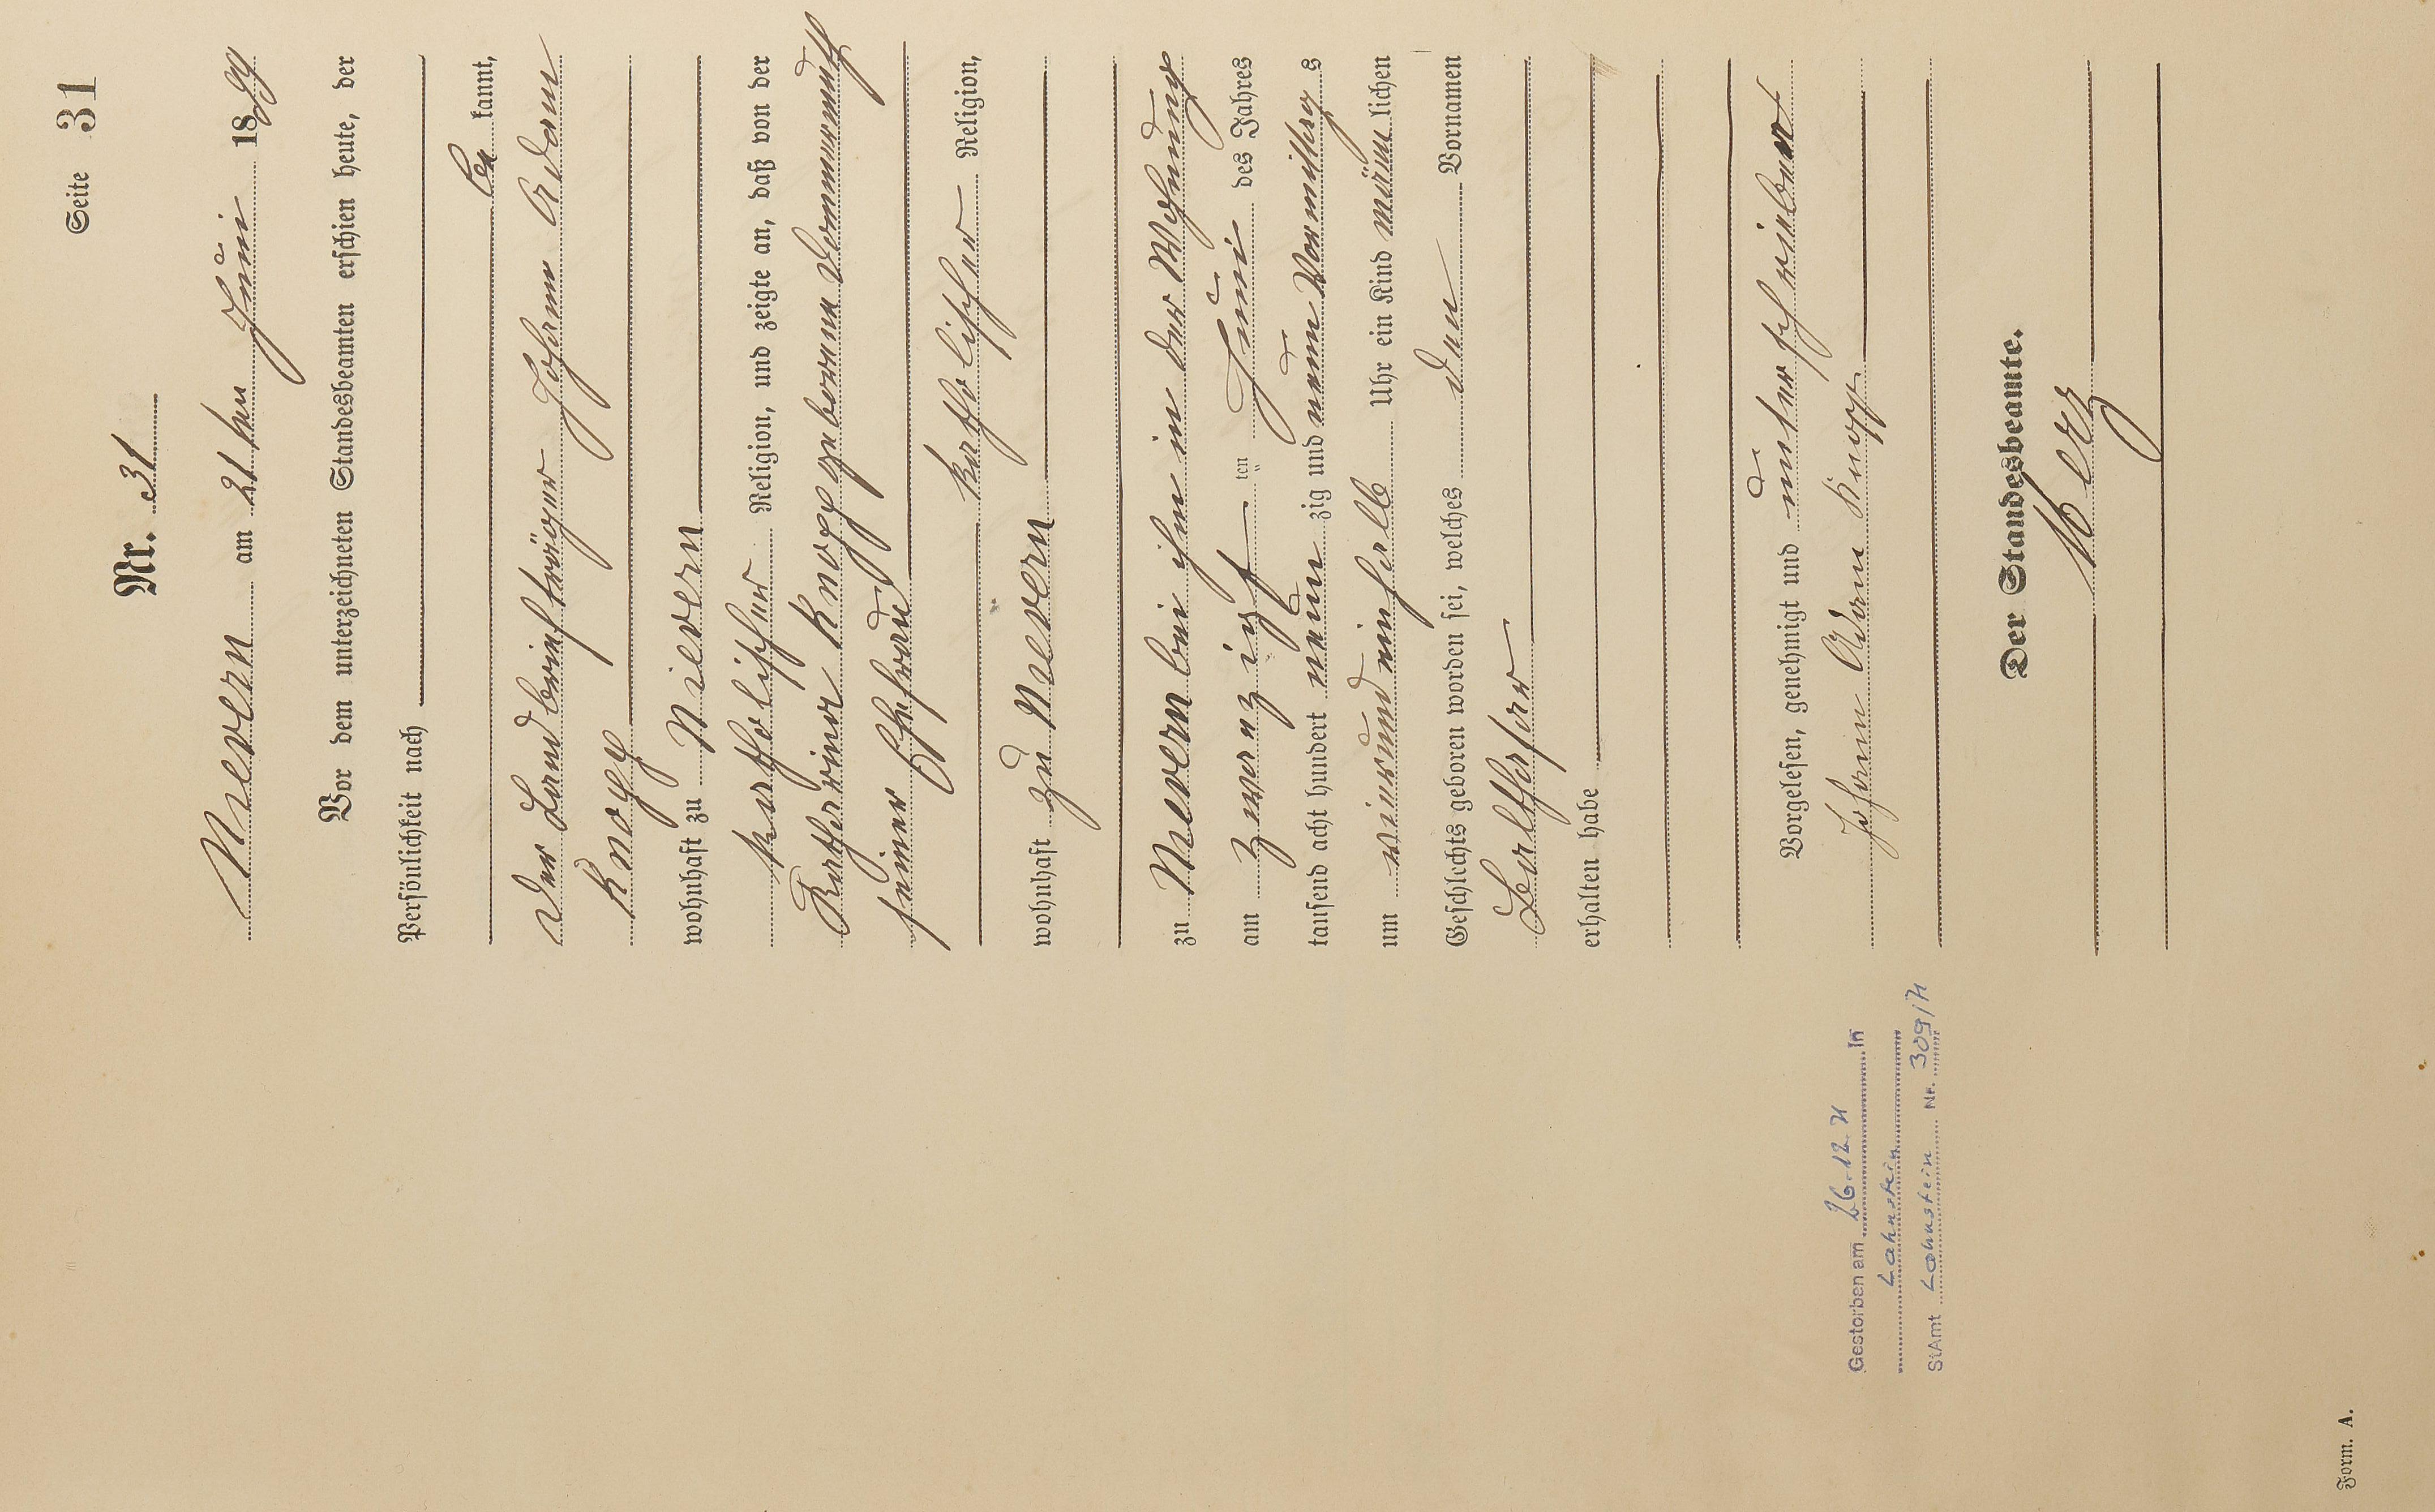 Seite 31
Nr. 31
Nievern am 21ten Juni 1899
Vor dem unterzeichneten Standesbeamten erschien heute, der
Persönlichkeit nach
be kannt,
der Landbriefträger Johann Adam
Knopp
wohnhaft zu Nievern
katholischer Religion, und zeigte an, daß von der
Katharina Knopp geborenen
seiner Ehefrau
katholischer Religion,
wohnhaft zu Nievern
zu Nievern bei ihm in der Wohnung
am zwanzigsten Juni des Jahres
tausend acht hundert neun zig und neun Vormittags
um ein halb Uhr ein Kind männlichen
Geschlechts geboren worden sei, welches den Vornamen
Balthasar
erhalten habe
Vorgelesen, genehmigt und unterschrieben
Johann Adam Knopp
Der Standesbeamte.
Gestorben am 26.12.71 in
Lahnstein
StAmt Lahnstein Nr. 309/71
Form. A.